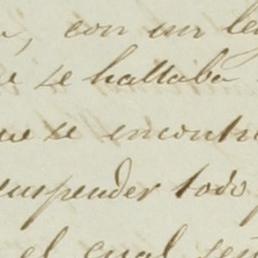 , con un le
e se hallaba
ue se encontr
suspender todo
el cual se